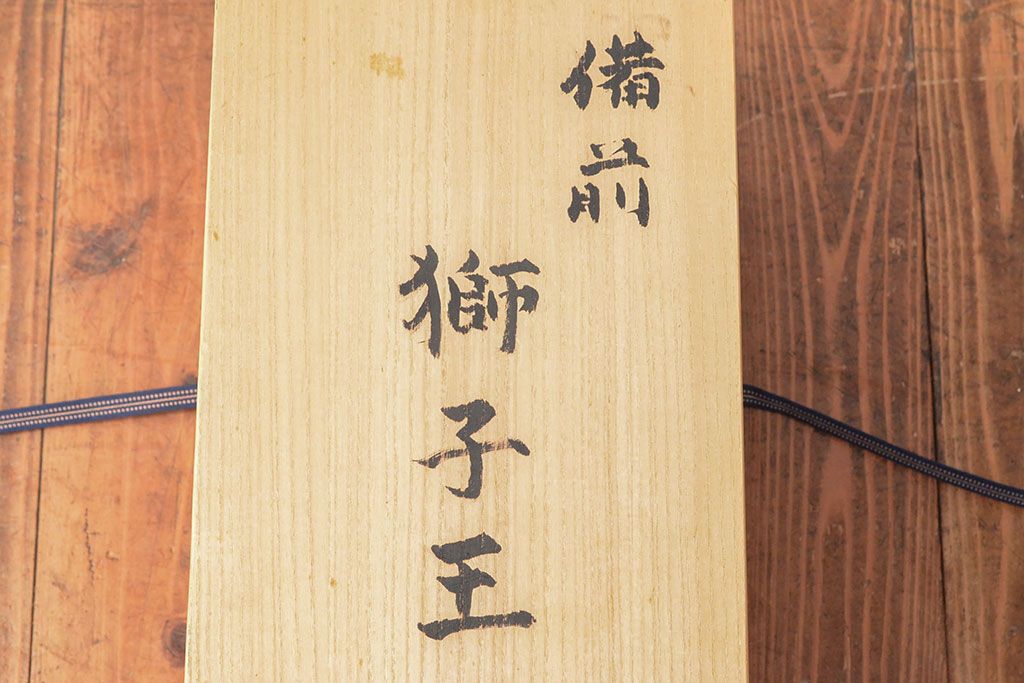 備前
獅子王